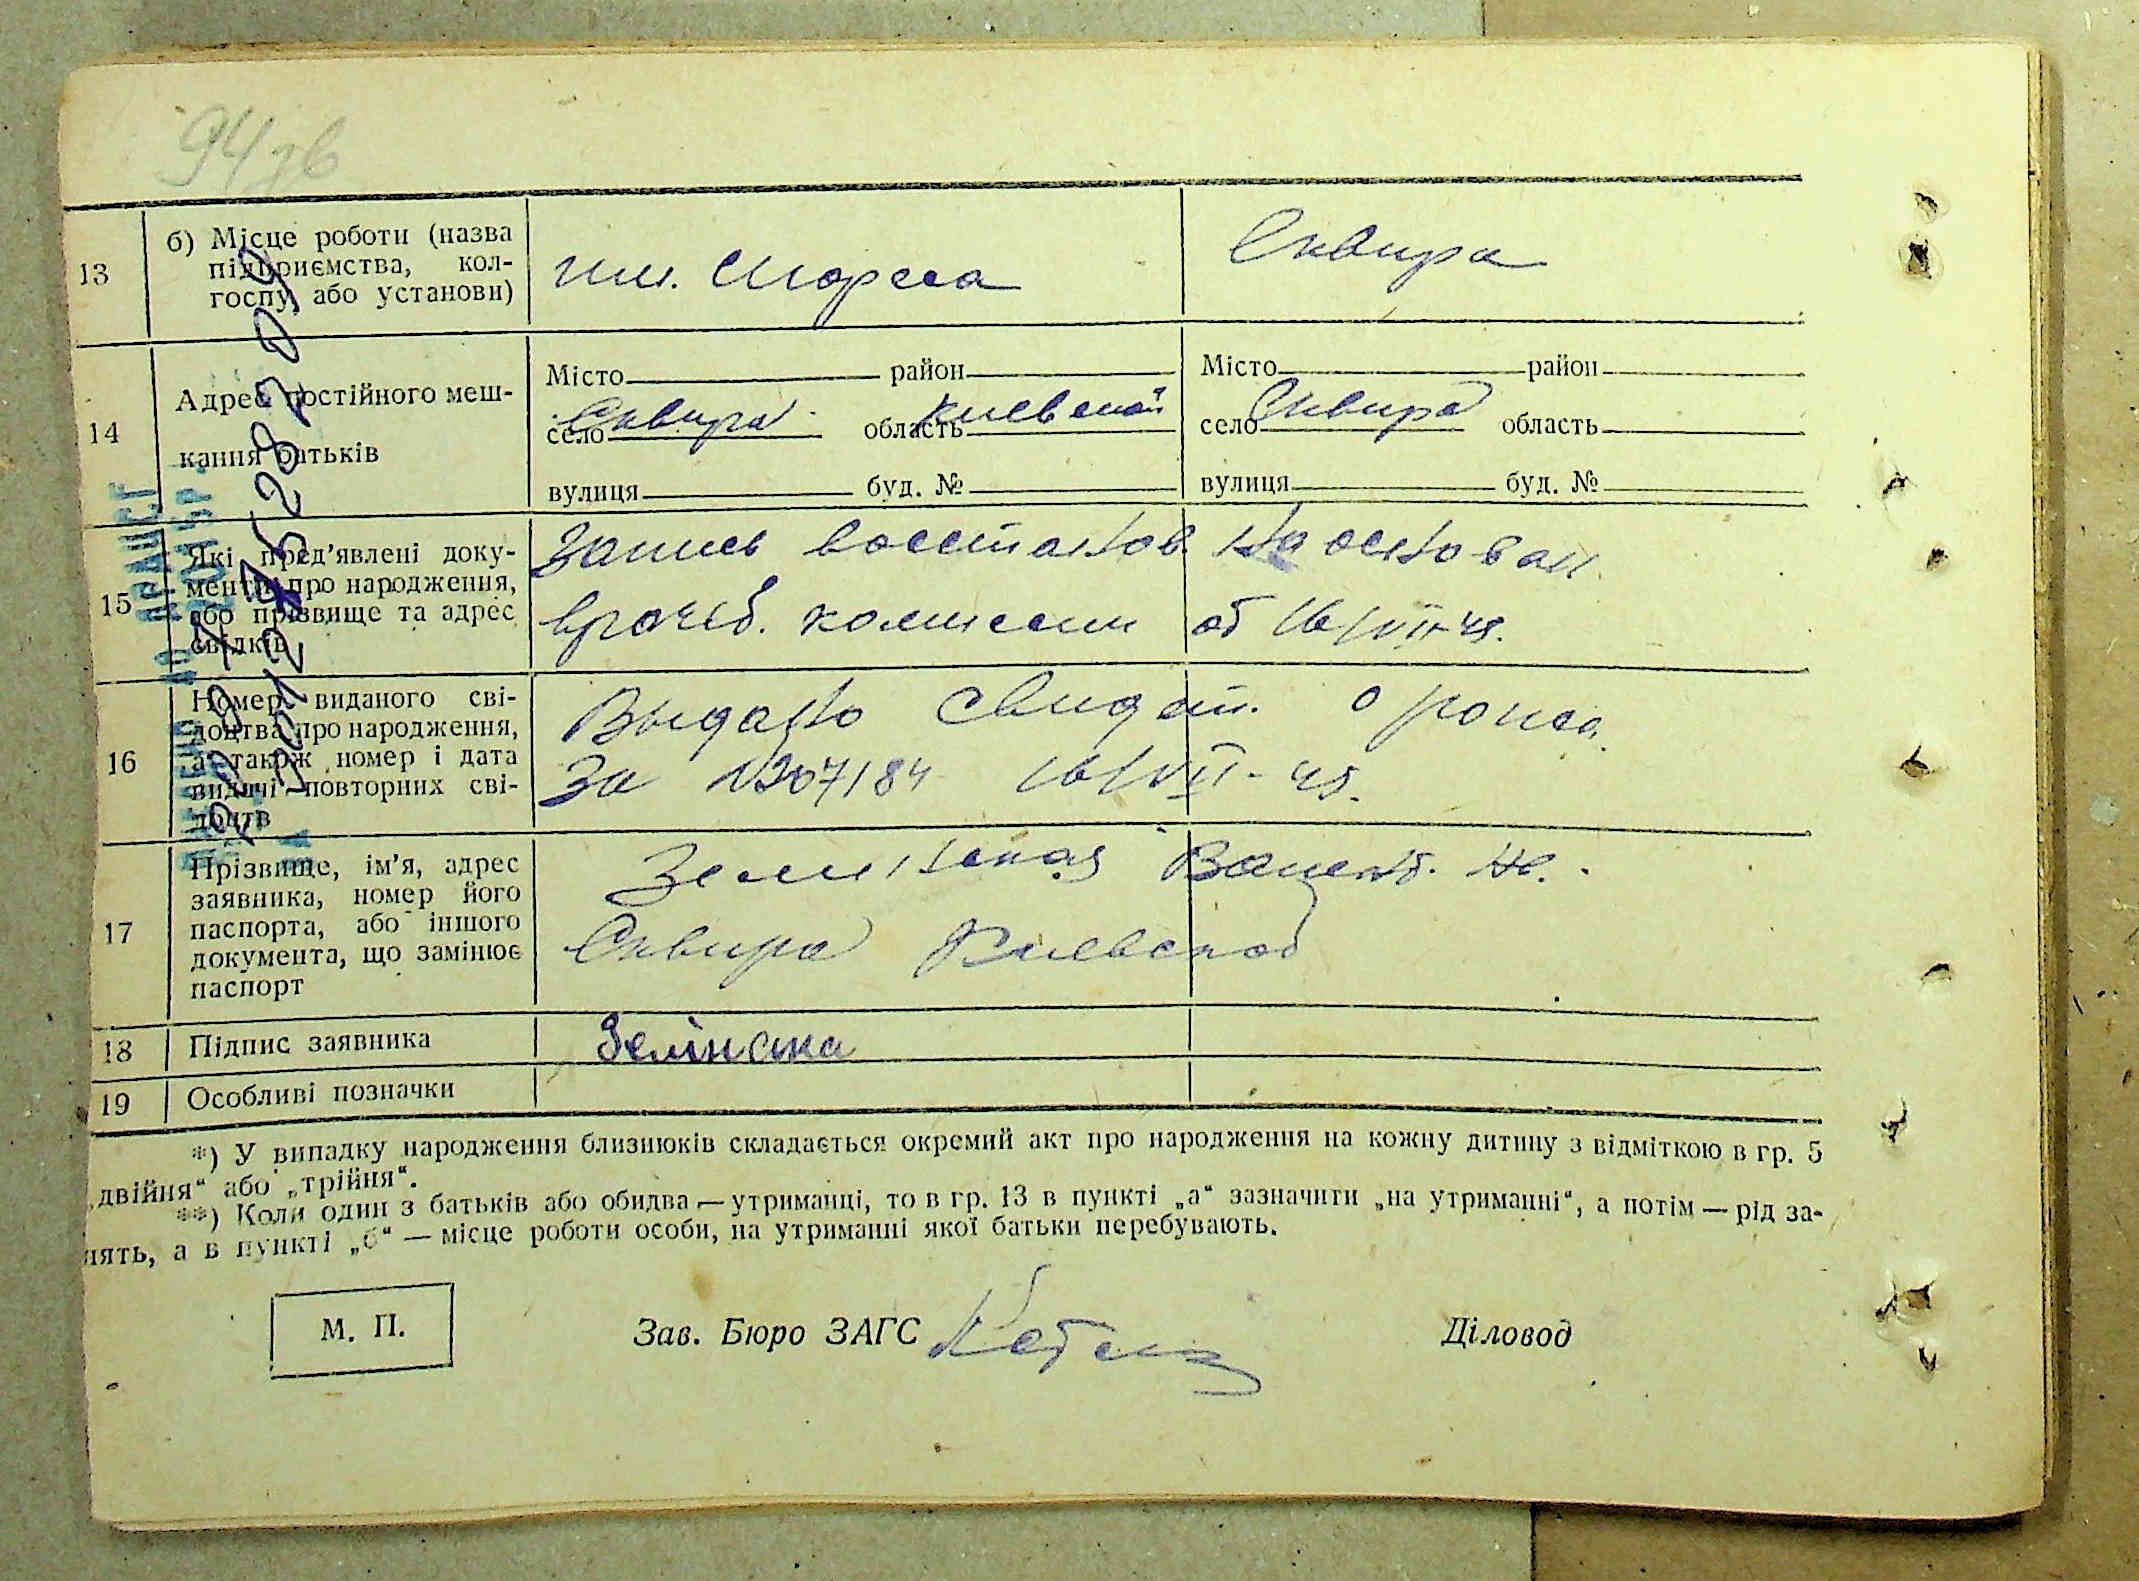 94 зв
13
б) Місце роботи (назва
підприємства, кол-
госпу або установи)
им. Щорса
Сквира
14
Адрес постійного меш-
кання батьків
Місто район
село Сквира область Киевской
вулиця буд. №
Місто район
село Сквира область
вулиця буд. №
15
Які пред’явлені доку-
менти про народження,
або прізвище та адрес
свідків
Запись восстанов. на основан.
врачеб. комиссии от 16/VII-45.
16
Номер виданого сві-
доцтва про народження,
а також номер і дата
видачі повторних сві-
доцтв
Выдано свидет. о рожд.
За №207184 16/VII-45.
17
Прізвище, ім’я, адрес
заявника, номер його
паспорта, або іншого
документа, що замінює
паспорт
Сквира Киевской
18
Підпис заявника
Зелінська
19
Особливі позначки
*) У випадку народження близнюків складається окремий акт про народження на кожну дитину з відміткою в гр. 5
„двійня“ або „трійня“.
**) Коли один з батьків або обидва — утриманці, то в гр. 13 в пункті „а“ зазначити „на утриманні“, а потім — рід за-
нять, а в пункті „б“ — місце роботи особи, на утриманні якої батьки перебувають.
М. П.
Зав. Бюро ЗАГС
Діловод